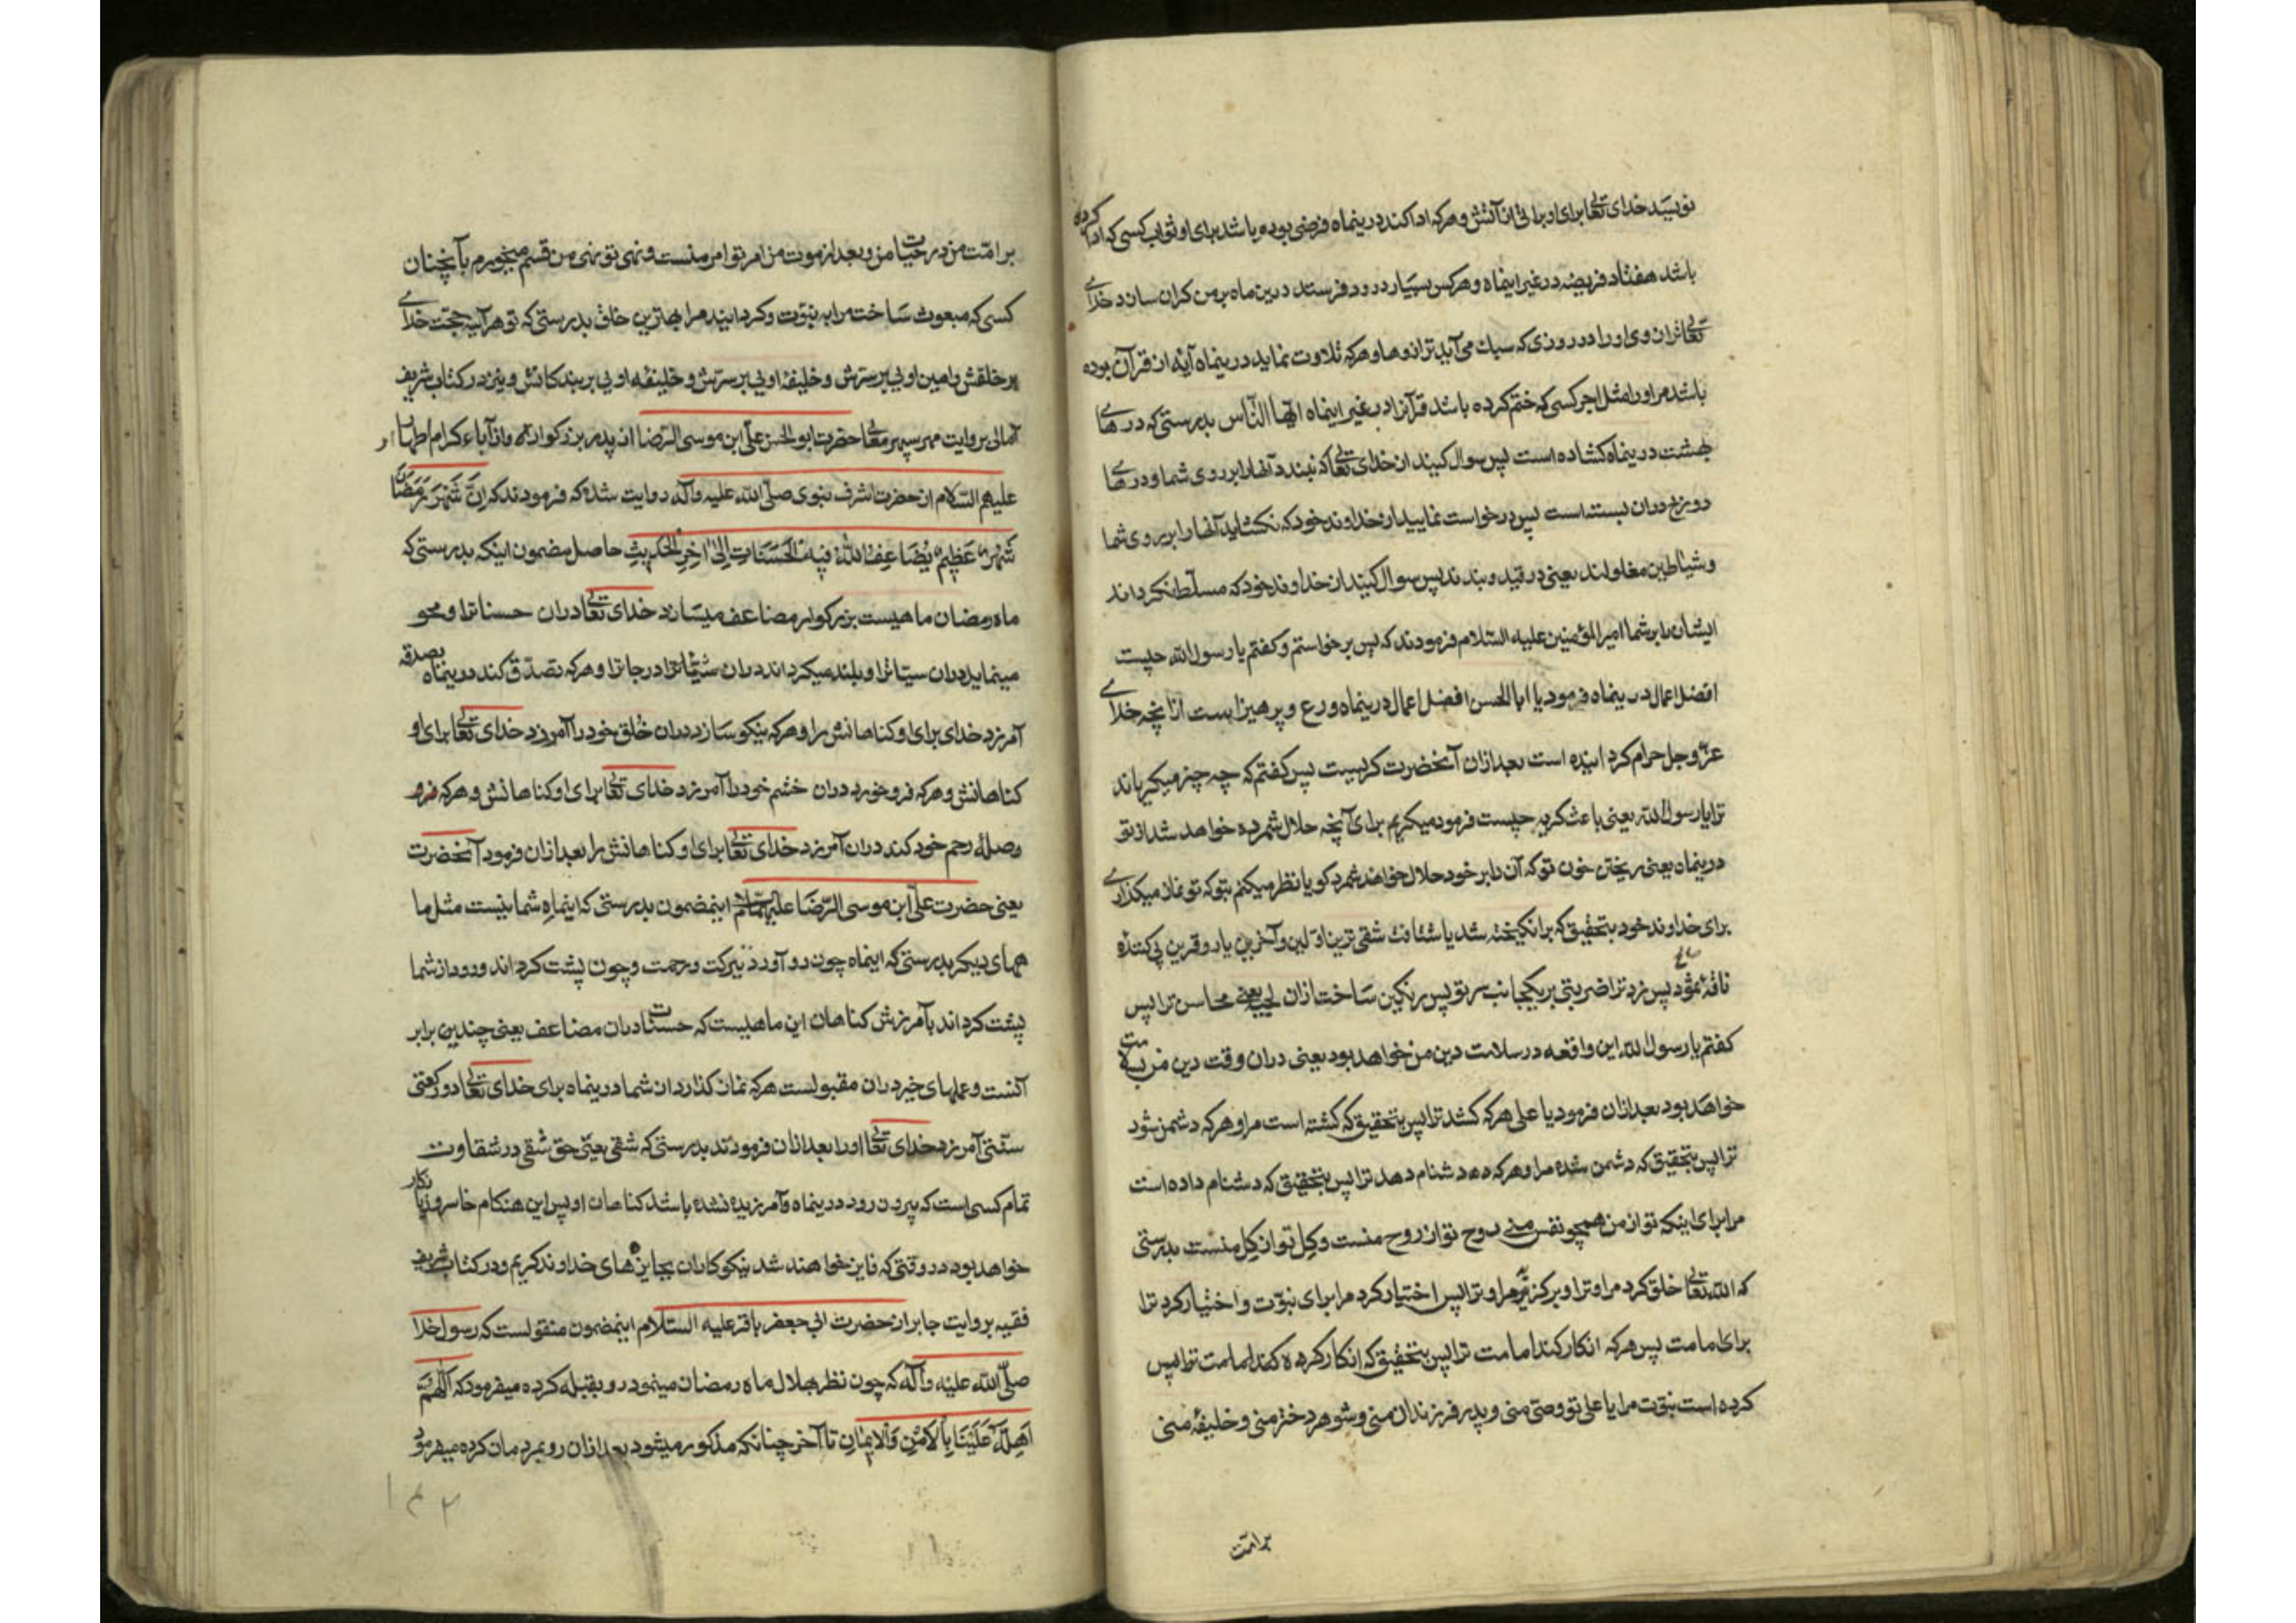 نویسد خدای تعالی برای او براتی از آتش و هرکه ادا کند درینماه فرضی بوده باشد برای او ثواب کسی که ادا کرده
باشد هفتاد فریضه در غیر اینماه و هرکس بسیار درود فرستد درین ماه بر من کران سازد خدای
تعالی تران وی او را در روزی که سبک می آید ترازوها و هرکه تلاوت نماید درینماه آیه از قرآن بوده
باشد مر او را مثل اجر کسی که ختم کرده باشد قرآنرا در غیر اینماه ایها النّاس بدرستی که درهای
بهشت درینماه کشاده است پس سوال کنید از خدای تعالی که نبندد آنها را بر روی شما و درهای
دوزخ دران بسته است پس درخواست نمایید از خداوند خود که نکشاید آنها را بر روی شما
و شیاطین مغلولند یعنی در قید و بندند پس سوال کنید از خداوند خود که مسلّط نکرداند
ایشان را بر شما امیرالمؤمنین علیه السلام فرمودند که پس برخواستم و کفتم یا رسول الله چیست
افضل اعمال درینماه فرمود یا ابا الحسن افضل اعمال درینماه ورع و پرهیز است از آنچه خدای
عزّ و جل حرام کردانیده است بعد ازان آنحضرت کریست پس کفتم که چه چیز میکریاند
ترا یا رسول الله یعنی باعث کریه چیست فرمود میکریم برای آنچه حلال شمرده خواهد شد از تو
درینماه یعنی ریختن خون تو که آن را بر خود حلال خواهند شمرد کویا نظر میکنم بتو که تو نماز میکذاری
برای خداوند خود بتحقیق که برانکیخته شد یا شتافت شقی ترین اوّلین و آخرین یار و قرین پی کننده
ناقهٔ ثمود پس زد ترا ضربتی بر یکجانب سر تو پس رنکین ساخت ازان لحیه یعنی محاسن ترا پس
کفتم یا رسول الله این واقعه در سلامت دین من خواهد بود یعنی دران وقت دین من بسلامت
خواهد بود بعد ازان فرمود یا علی هرکه کشد ترا پس بتحقیق که کشته است مرا و هرکه دشمن شود
ترا پس بتحقیق که دشمن شده مرا و هرکه دهد دشنام دهد ترا پس بتحقیق که دشنام داده است
مرا برای اینکه تو از من همچو نفس منی روح تو از روح منست و کل تو از کل منست بدرستی
که الله تعالی خلق کرد مرا و ترا و برکزید مرا و ترا پس اختیار کرد مرا برای نبوّت و اختیار کرد ترا
برای امامت پس هرکه انکار کند امامت ترا پس بتحقیق که انکار کرده
کرده است نبوّت مرا یا علی تو وصیّ منی و پدر فرزندان منی و شوهر دختر منی و خلیفهٔ منی
بر امّت
بر امّت من در حیات من و بعد از موت من امر تو امر منست و نهی تو نهی من قسم میخورم بآنچنان
کسی که مبعوث ساخت مرا به نبوّت و کردانید مرا بهترین خلق بدرستی که تو هرآینه حجّت خدای
بر خلقش و امین اویی بر سرّش و خلیفهٔ اویی بر بندکانش و نیز در کتاب شریف
آمالی بروایت مهر سپهر معالی حضرت ابو الحسن علیّ ابن موسی الرّضا از پدر بزرکوارش و از آباء کرام اطهار او
علیهم السّلام از حضرت اشرف نبوی صلّی الله علیه و آله روایت شده که فرمودند که اِنَّ شَهْرَ رَمَضَانَ
شَهْرٌ عَظِیمٌ یُضَاعِفُ اللهُ فِیهِ الْحَسَنَاتِ اِلیٰ اٰخِرِ الْحَدِیثِ حاصل مضمون اینکه بدرستی که
ماه رمضان ماهیست بزرکوار مضاعف میسازد خدای تعالی دران حسنات را و محو
مینماید دران سیّاترا و بلند میکرداند دران درجاترا و هرکه تصدّق کند درینماه بصدقه
آمرزد خدای برای او کناهانش را و هرکه نیکو سازد دران خُلق خود را آمرزد خدای تعالی برای او
کناهانش و هرکه فرو خورد دران خشم خود را آمرزد خدای تعالی برای او کناهانش و هرکه
وصلهٔ رحم خود کند دران آمرزد خدای تعالی برای او کناهانش را بعد ازان فرمود آنحضرت
یعنی حضرت علیّ ابن موسی الرّضا علیهما السلام اینمضمون بدرستی که اینماهِ شما نیست مثل ما
ههای دیکر بدرستی که اینماه چون رو آورد ببرکت و رحمت و چون پشت کرداند و رود از شما
پشت کرداند بآمرزش کناهان این ماهیست که حسنات دران مضاعف یعنی چندین برابر
آنست و عملهای خیر دران مقبولست هرکه نماز کذارد از شما درینماه برای خدای تعالی دو رکعتی
سنّتی آمرزد خدای تعالی او را بعد ازان فرمودند بدرستی که شقی یعنی حق شقی در شقاوت
تمام کسی است که بیرون رود درینماه و آمرزیده نشده باشد کناهان او پس این هنکام خاسر و زیانکار
خواهد بود در وقتی که فایز خواهند شد نیکوکاران بجایزهای خداوند کریم و در کتاب شریف
فقیه بروایت جابر از حضرت ابی جعفر باقر علیه السلام اینمضمون منقولست که رسول خدا
صلّی الله علیه و آله که چون نظر بهلال ماه رمضان مینمود رو بقبله کرده میفرمود که اَللّهُمَّ
اَهِلَّهُ عَلَیْنَا بِالْاَمْنِ وَالْاِیمَانِ تا آخر چنانکه مذکور میشود بعد ازان رو بمردمان کرده میفرمود
۱۴۲